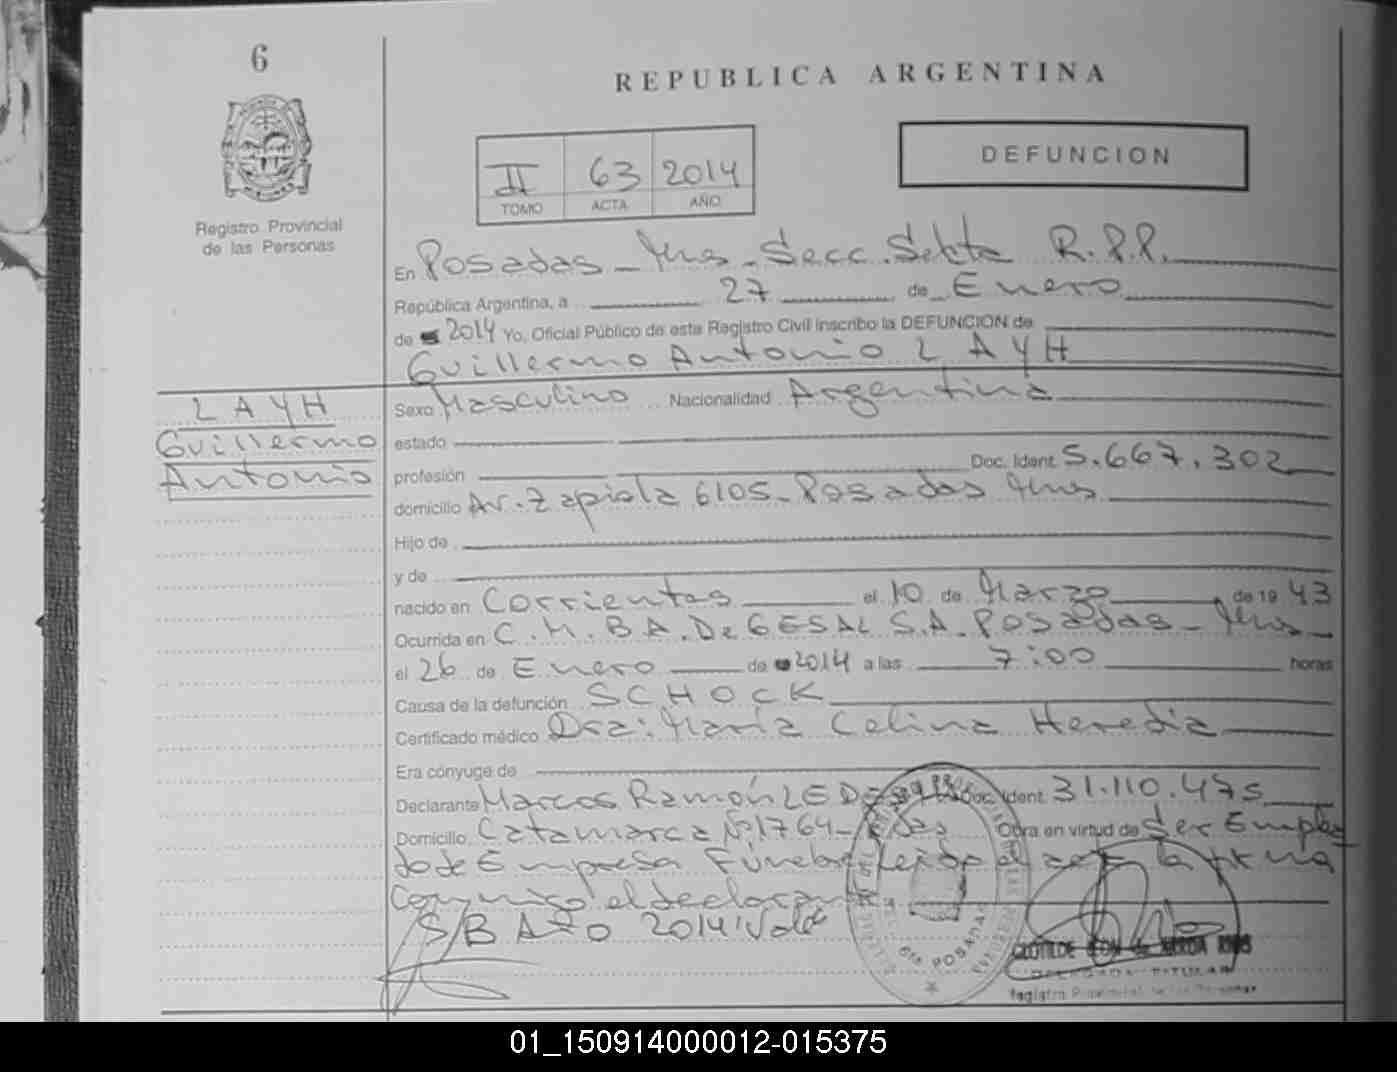 6
REPUBLICA ARGENTINA
DEFUNCION
II 63 2014
TOMO ACTA AÑO
Registro Provincial
de las Personas
En Posadas - Mns - Secc. Sexta R.P.P.
República Argentina, a 27 de Enero
de 2014 Yo, Oficial Público de este Registro Civil inscribo la DEFUNCION de
Guillermo Antonio LAYH
LAYH
Guillermo
Antonio
Sexo Masculino Nacionalidad Argentina
estado
profesión Doc. Ident. 5.667.302
domicilio Av. Zapiola 6105 - Posadas Mns
Hijo de
y de
nacido en Corrientes el 10 de Marzo de 1943
Ocurrida en C.M.B.A. De GESAL S.A. Posadas - Mns
el 26 de Enero de 2014 a las 7:00 horas
Causa de la defunción SCHOCK
Certificado médico Dra: María Celina Heredia
Era cónyuge de
Declarante Marcos Ramón Doc. Ident. 31.110.475
Domicilio Catamarca Nº 1764 - Pdas Obra en virtud de Ser Emplea
do de Empresa Fúnebre Leida el acta la firma
conmigo el declarante
S/B Año 2014: Vale
6ta POSADAS
CLOTILDE
DELEGADA TITULAR
Registro Provincial de las Personas
01_150914000012-015375